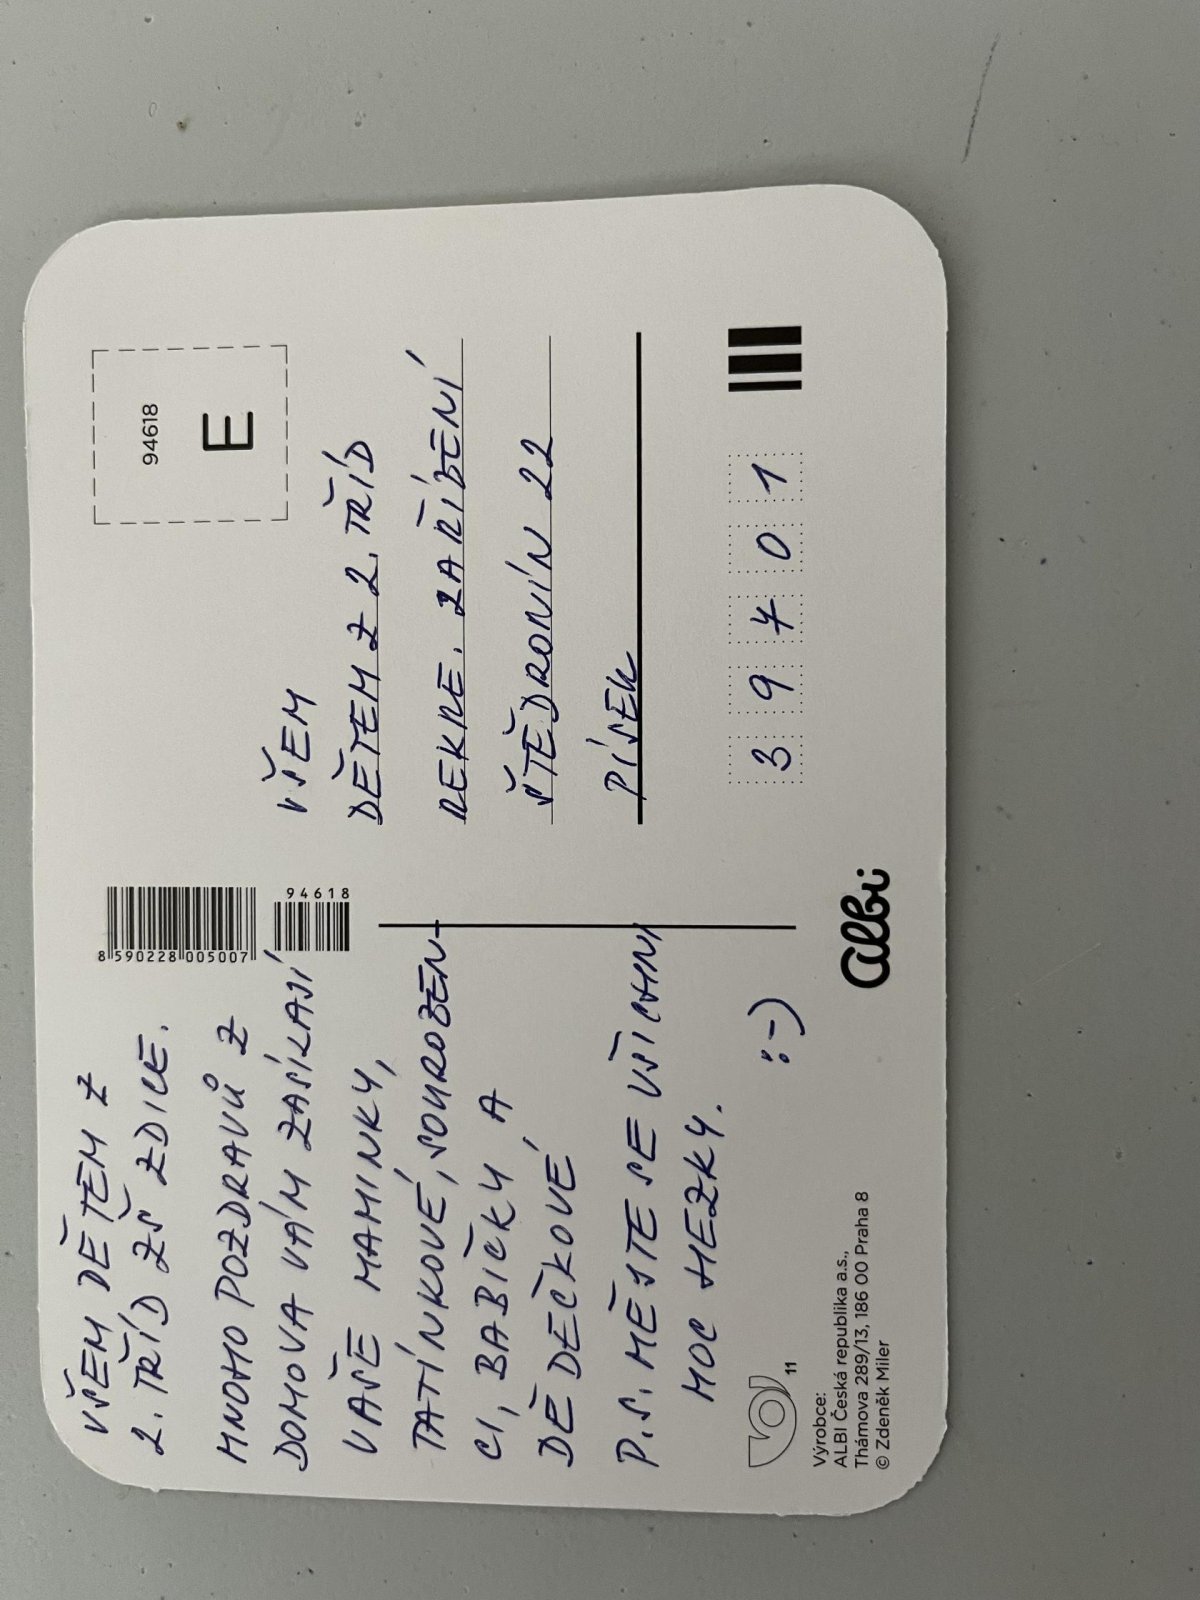 VŠEM DĚTEM Z
2. TŘÍD ZŠ ZDICE.
MNOHO POZDRAVŮ Z
DOMOVA VÁM ZASÍLAJÍ
VAŠE MAMINKY,
TATÍNKOVÉ, SOUROZEN-
CI, BABIČKY A
DĚDEČKOVÉ
P.S. MĚJTE SE VŠICHNI
MOC HEZKY.
:-)
11
Výrobce:
ALBI Česká republika a.s.,
Thámova 289/13, 186 00 Praha 8
© Zdeněk Miler
8 590228 005007
94618
albi
94618
E
VŠEM
DĚTEM Z 2. TŘÍD
REKRE. ZAŘÍZENÍ
ŠTĚDRONÍN 22
PÍSEK
3 9 7 0 1